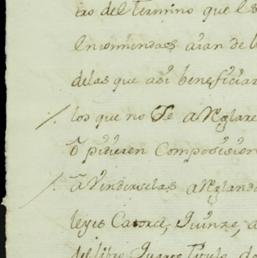 tro del termino que les
Encomendas aran de l
delas que asi beneficiar
los que no se a Reglare
o pidieren Composision
a Venderselas a Reglando
leyes Catorce, Quinze, a
del libro Quarto titulo do